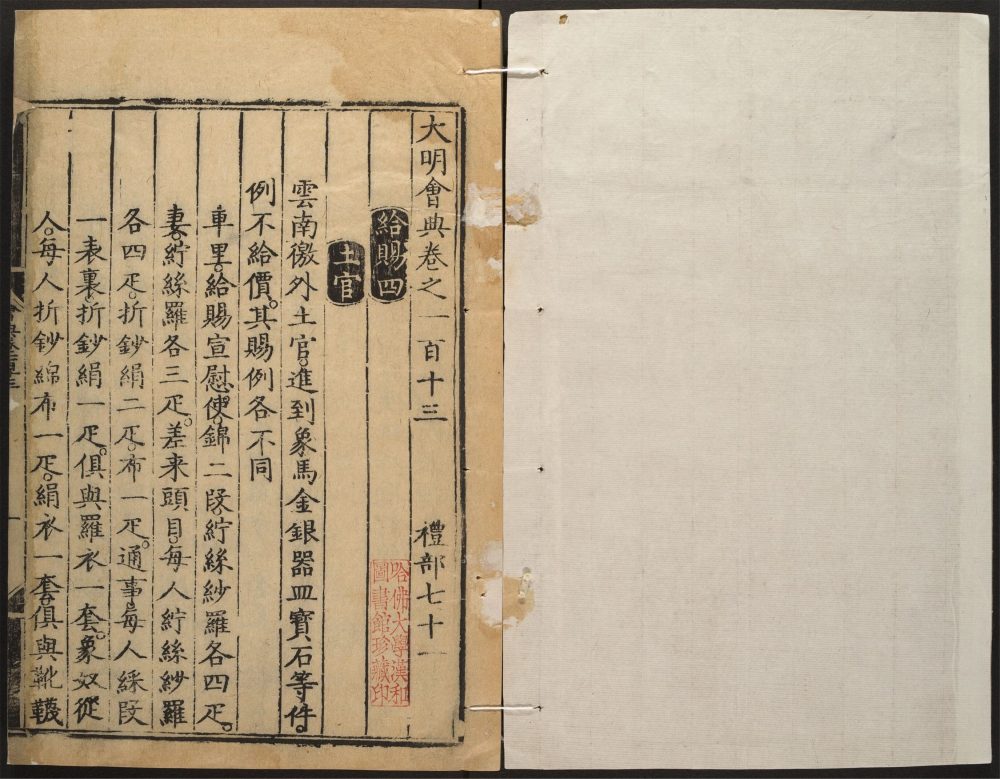 大明會典卷之一百十三　禮部七十一
給賜四
土官
雲南徼外土官。進到象馬金銀器皿寶石等件。
例不給價。其賜例各不同
車里。給賜宣慰使。錦二叚。紵絲紗羅各四疋。
妻。紵絲羅各三疋。差来頭目。每人紵絲紗羅
各四疋。折鈔絹二疋。布一疋。通事。每人綵叚
一表裏。折鈔絹一疋。俱與羅衣一套。象奴從
人。每人折鈔綿布一疋。絹衣一套。俱與靴韈
哈佛大學漢和
圖書館珍藏印